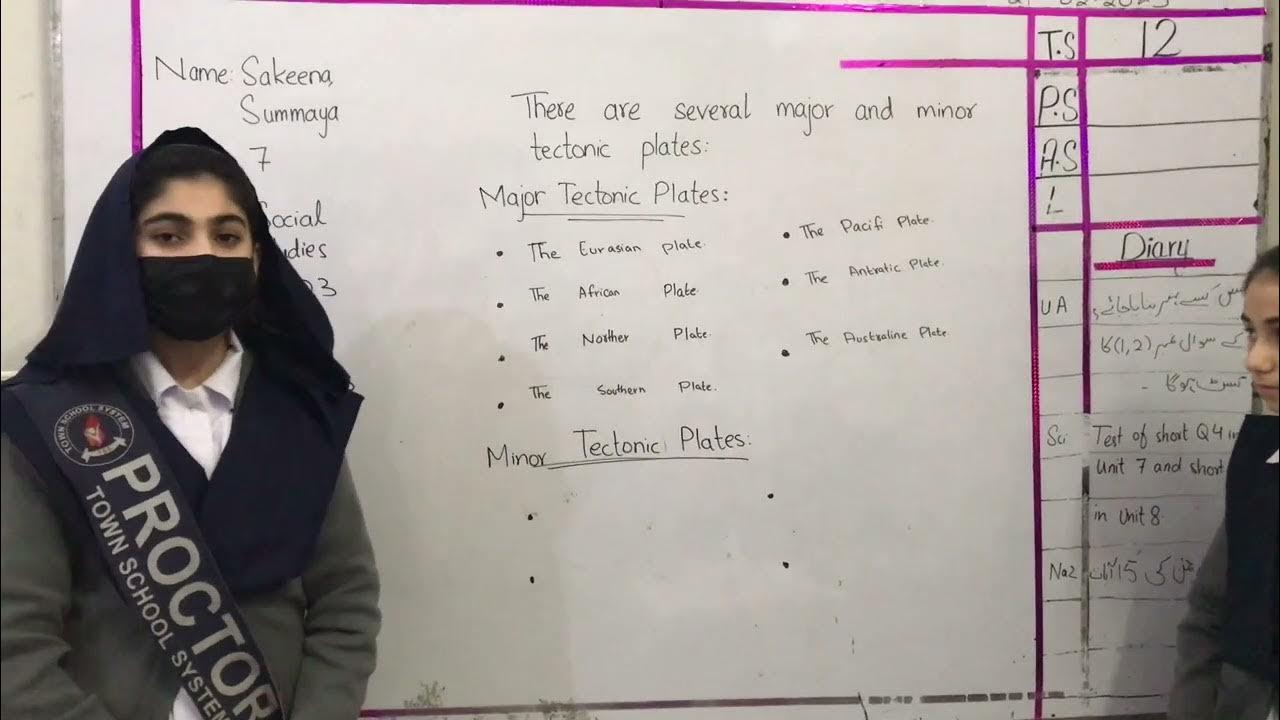 Name: Sakeena,
Summaya
7
Social
03
There are several major and minor
tectonic plates:
Major Tectonic Plates:
• The Eurasian plate.
• The African Plate
• The Norther Plate.
• The Southern Plate.
• The Pacifi Plate.
• The Antratic Plate.
• The Australine Plate.
Minor Tectonic Plates:
T.S 12
P.S
A.S
L
Diary
UA
کے سوال نمبر (1,2) کا
ٹیسٹ ہوگا -
Sci Test of short Q4 in
Unit 7 and short
in Unit 8.
Naz
کی 15
TOWN SCHOOL SYSTEM
PROCTOR
TOWN SCHOOL SYSTEM